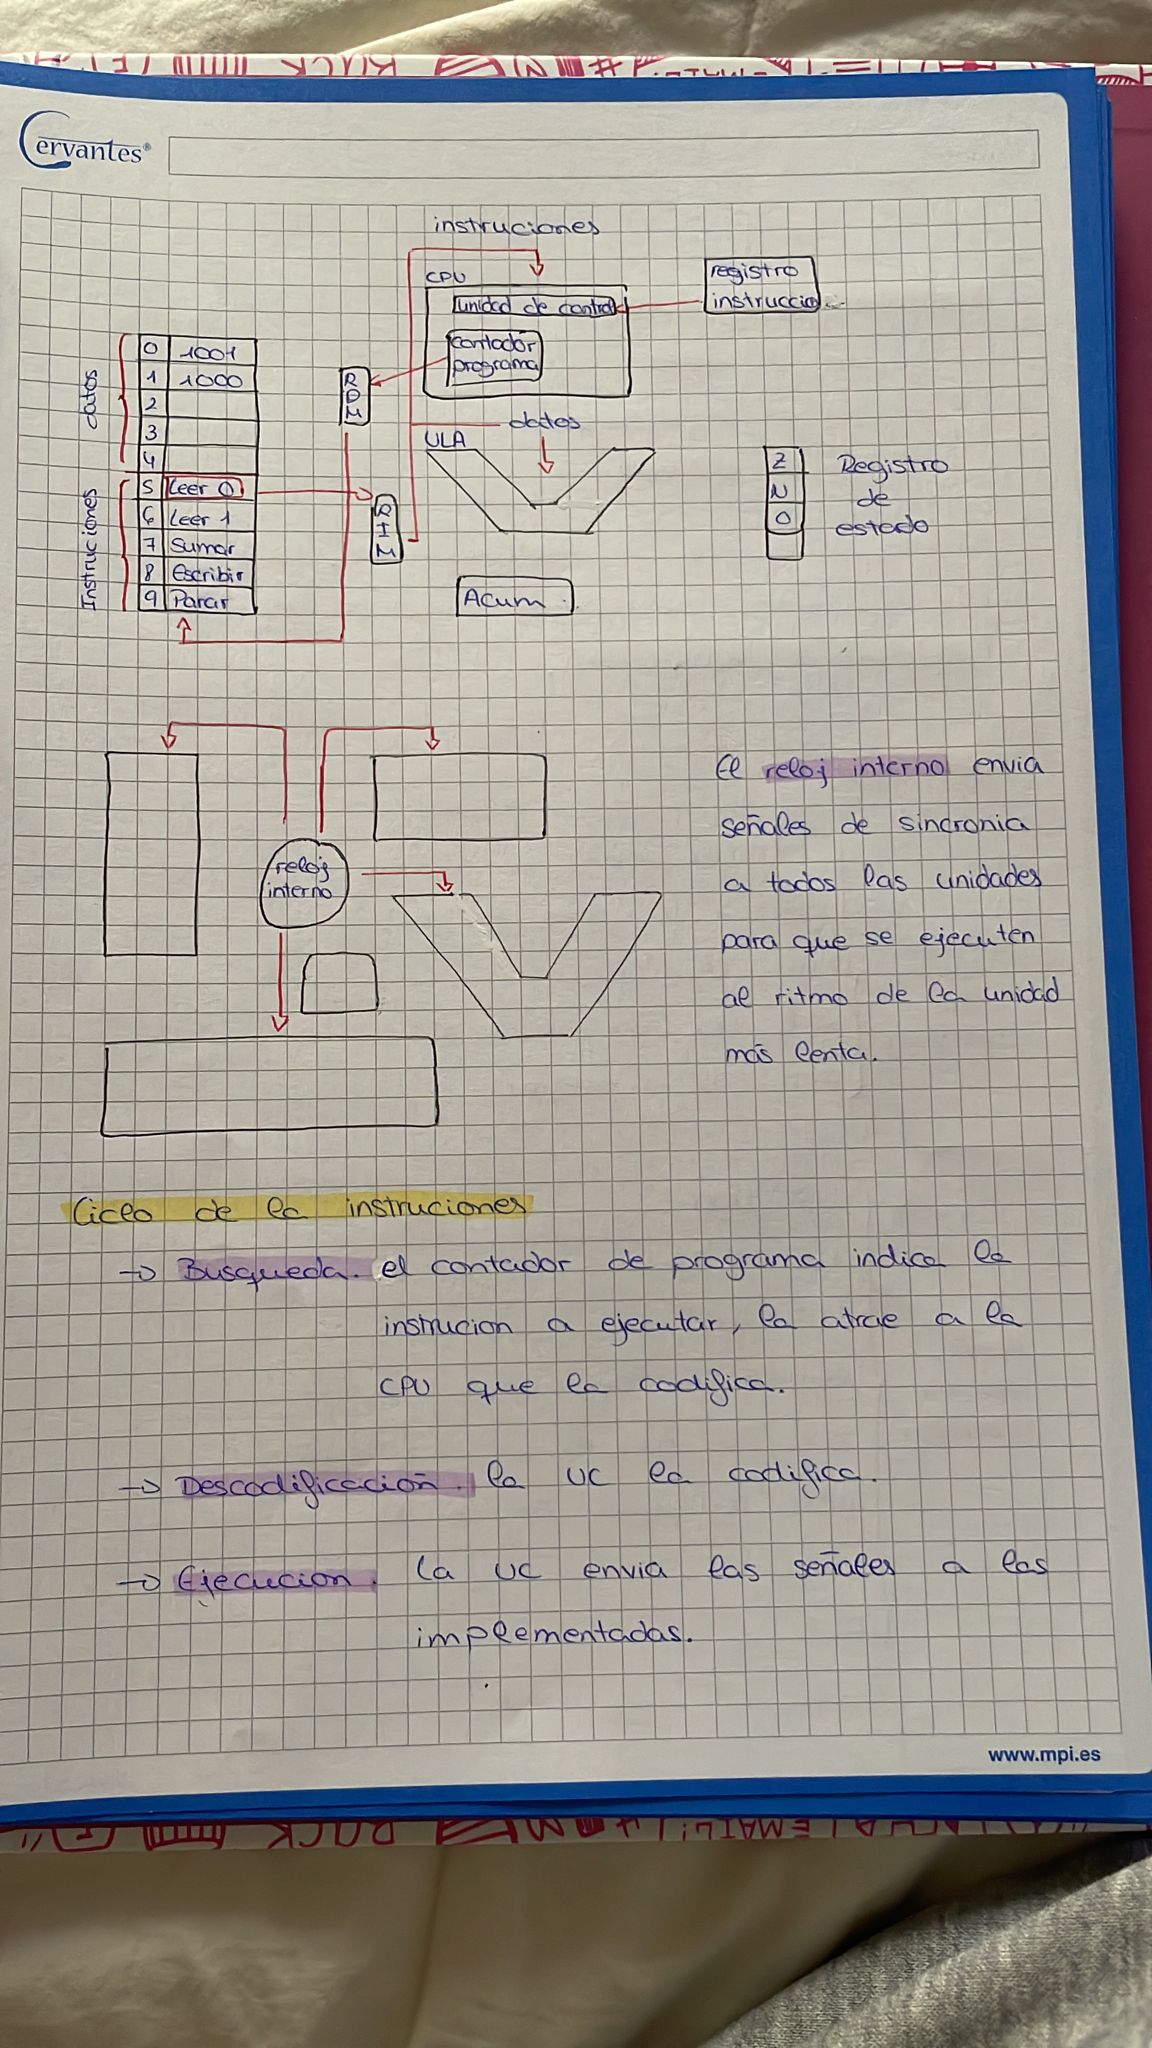 Cervantes®
instruciones
CPU
registro
unidad de control
instruccio
contador
programa
datos
0 1001
1 1000
2
3
4
RDM
datos
ULA
Instruciones
5 Leer 0
6 Leer 1
7 Sumar
8 Escribir
9 Parar
RIM
Z
N
O
Registro
de
estado
Acum.
reloj
interno
El reloj interno envia
señales de sincronia
a todos las unidades
para que se ejecuten
al ritmo de la unidad
más lenta.
Ciclo de la instruciones
→ Busqueda. el contador de programa indica la
instrucion a ejecutar, la atrae a la
CPU que la codifica.
→ Descodificación. la UC la codifica.
→ Ejecucion. La UC envia las señales a las
implementadas.
www.mpi.es